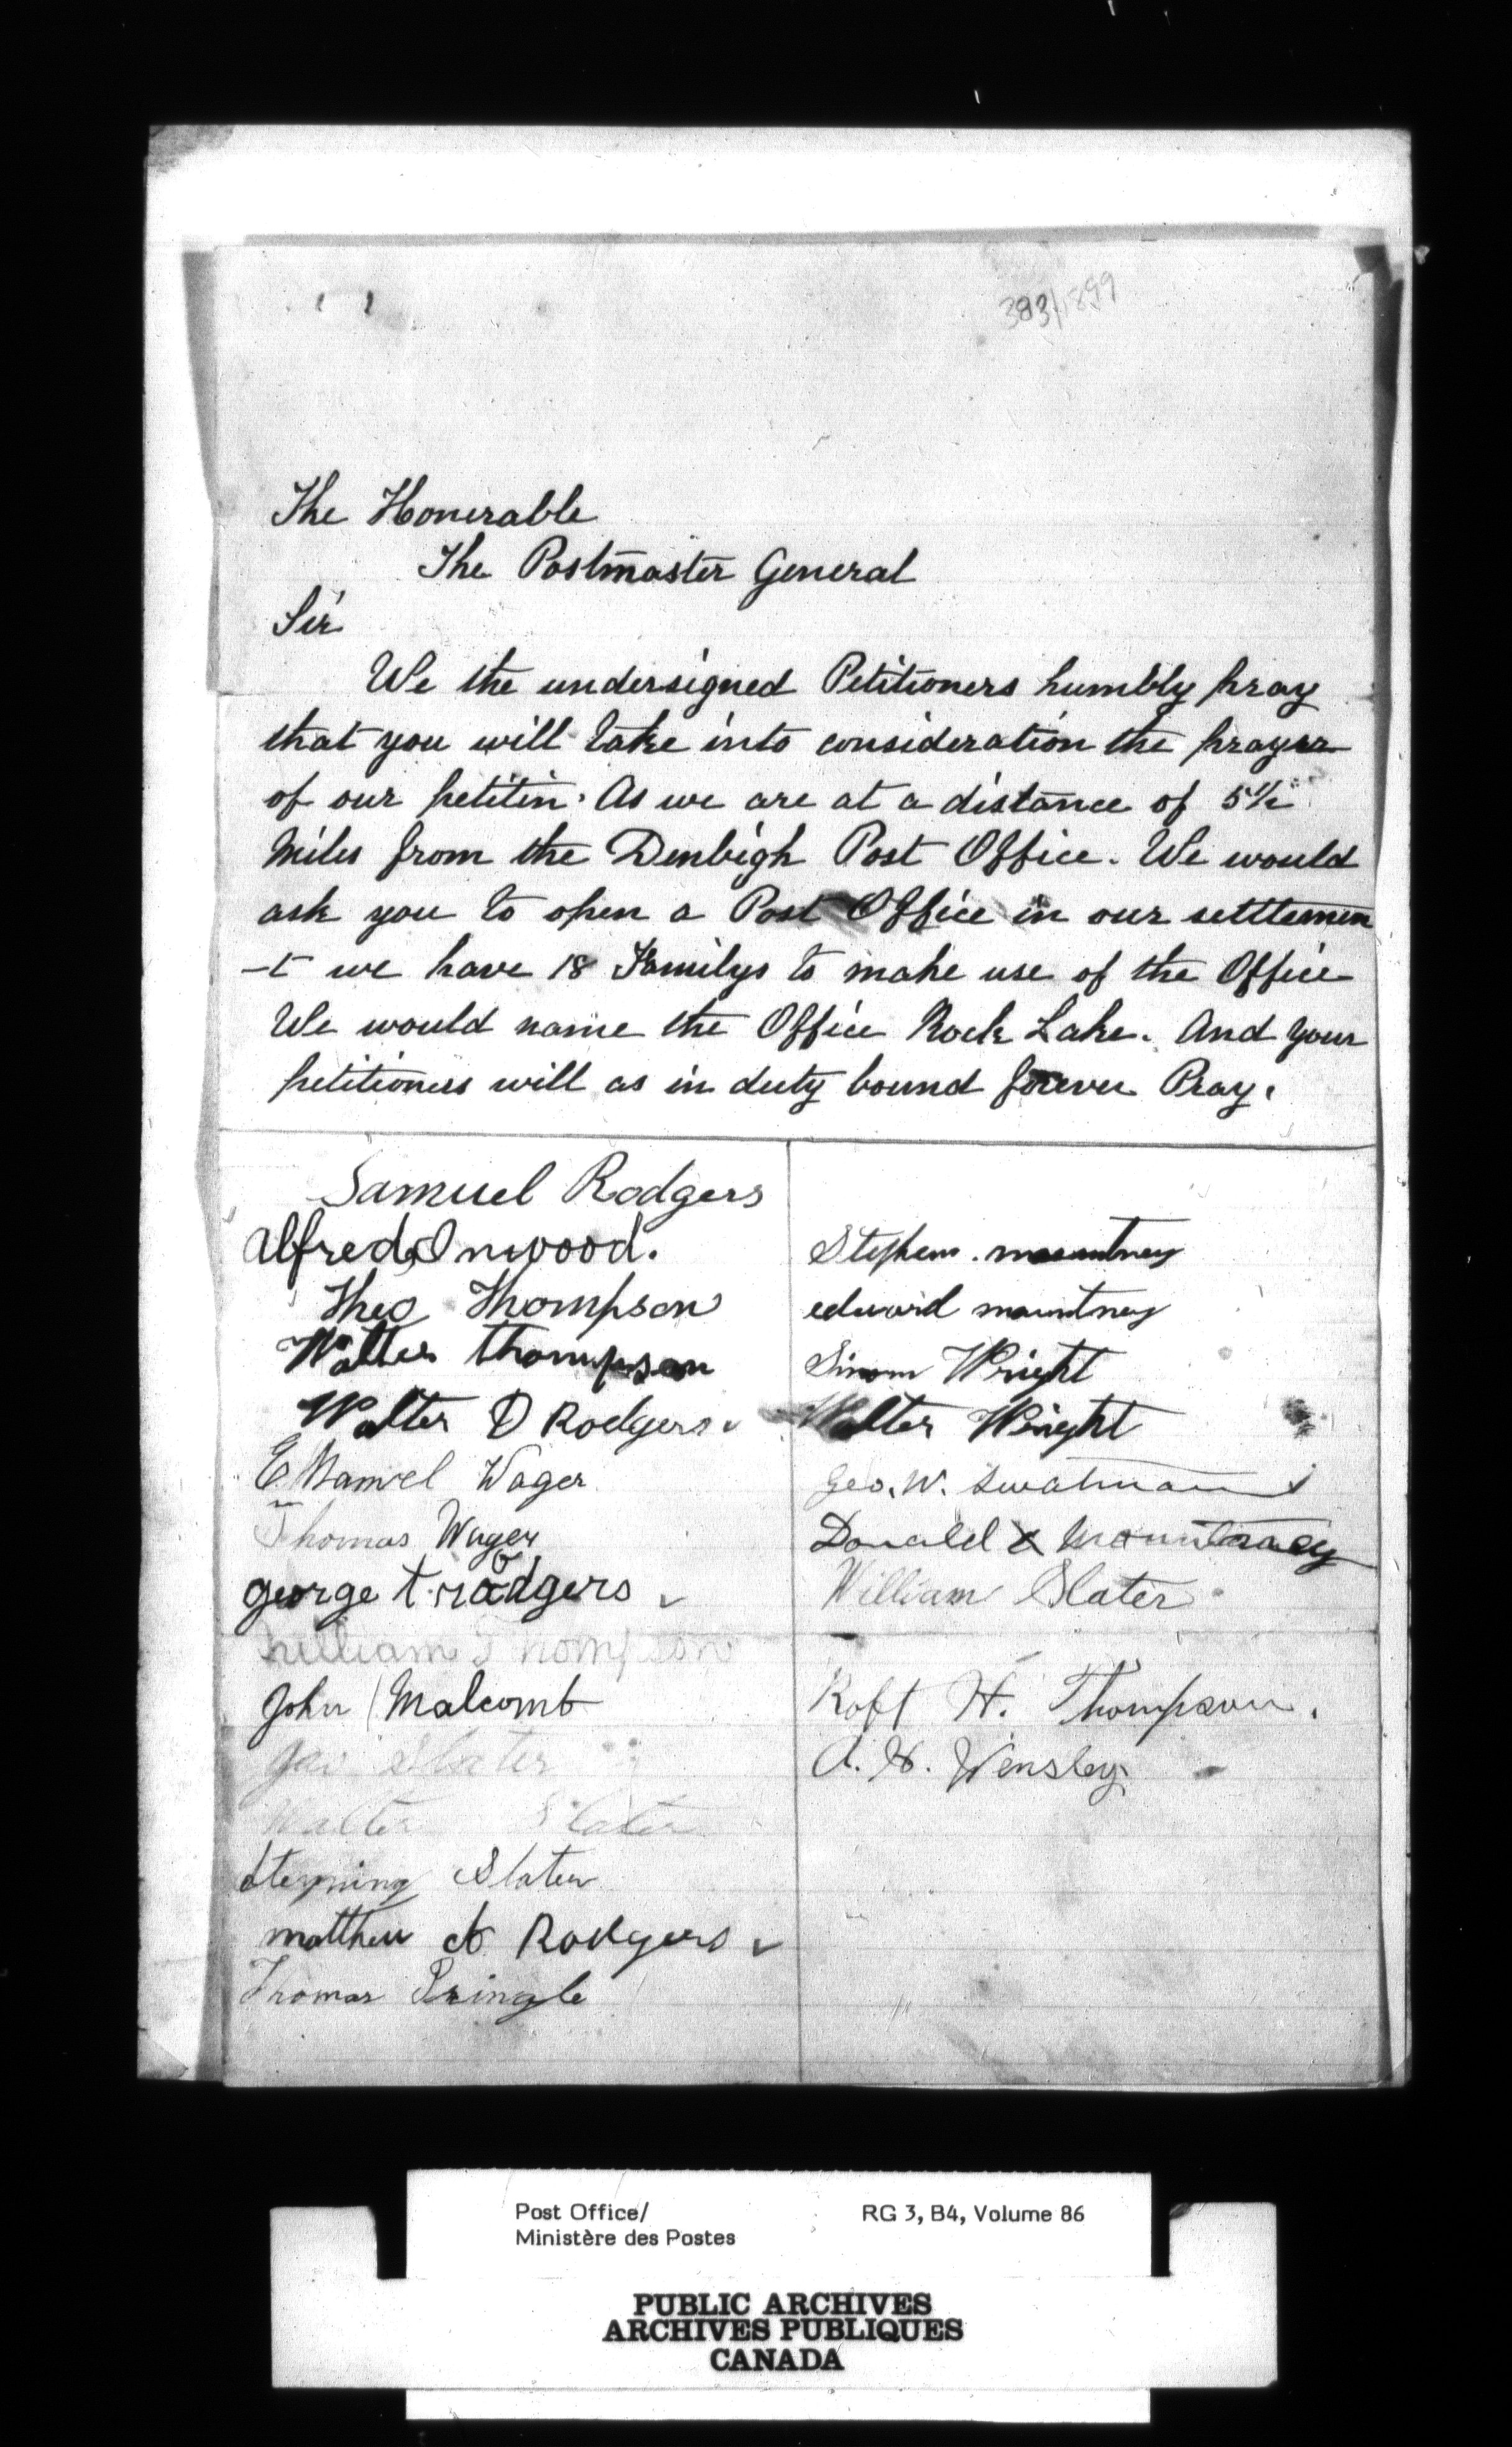 383/1899
The Honerable
The Postmaster General
Sir
We the undersigned Petitioners humbly pray
that you will take into consideration the prayer
of our petitin. As we are at a distance of 5½
Miles from the Denbigh Post Office. We would
ask you to open a Post Office in our settlemen
-t we have 18 Familys to make use of the Office
We would name the Office Rock Lake. And your
petitioners will as in duty bound forever Pray.
Samuel Rodgers
Alfred Inwood.
Theo Thompson
Walter Thompson
Walter D Rodgers
E Manuel Wager
Thomas Wager
george t rodgers
William Thompson
John Malcomb
Slater
Walter Slater
Slater
matthew A Rodgers
Thomas Pringle
Stephen mountney
edward mountney
Simon Wright
Walter Wright
Geo. W. Swatman
Donald
William Slater
Robt H. Thompson.
A. H. Wensley
Post Office/
Ministère des Postes
RG 3, B4, Volume 86
PUBLIC ARCHIVES
ARCHIVES PUBLIQUES
CANADA